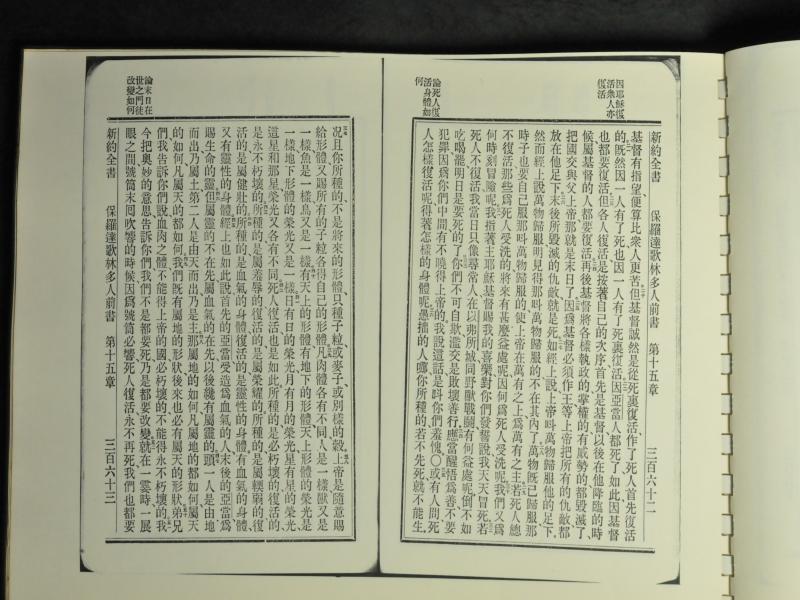 因耶穌復
活衆人亦
復活
論死人復
活身體如
何
新約全書 保羅達歌林多人前書 第十五章 三百六十二
基督有指望便算比衆人更苦但基督誠然是從死裏復活作了死人首先復活
的既然因一人有了死也因一人有了死裏復活因亞當人都死了如此因基督
也都要復活但各人復活是按著自己的次序首先是基督以後在他降臨的時
候屬基督的人都要復活再後基督將各樣執政的掌權的有威勢的都毀滅了
把國交與父上帝那就是末日了因爲基督必須作王等上帝把所有的仇敵都
放在他足下末後所毀滅的仇敵就是死如經上說上帝呌萬物歸服他的足下
然而經上說萬物歸服明見得那呌萬物歸服的不在其內了萬物既已歸服那
時子也要自己服那呌萬物歸服的使上帝在萬有之上爲萬有之主若死人總
不復活那些爲死人受洗的將來有甚麼益處呢因何爲死人受洗呢我們又爲
何時刻冒險呢我指著主耶穌基督賜我的喜樂對你們發誓說我天天冒死若
死人不復活我當日只像尋常人在以弗所城同野獸戰鬭有何益處呢倒不如
吃喝罷明日是要死的了你們不可自欺濫交是敗壞善行應當醒悟爲善不要
犯罪因爲你們中間有不曉得上帝的我說這話是呌你們羞愧〇或有人問死
人怎樣復活呢得著怎樣的身體呢愚拙的人哪你所種的若不先死就不能生
况且你所種的不是將來的形體只種子粒或麥子或別樣的穀上帝是隨意賜
給形體又賜所有的子粒各得自己的形體凡肉體各有不同人是一樣獸又是
一樣魚是一樣鳥又是一樣有天上的形體有地下的形體天上形體的榮光是
一樣地下形體的榮光又是一樣日有日的榮光月有月的榮光星有星的榮光
這星和那星榮光又各有不同死人復活也是如此所種的是必朽壞的復活的
是永不朽壞的所種的是羞辱的復活的是榮耀的所種的是輭弱的復
活的是健壯的所種的是血氣的身體復活的是靈性的身體有血氣的身體
又有靈性的身體經上也如此說首先的亞當受造爲血氣的人末後的亞當爲
賜生命的靈但屬靈的不在先屬血氣的在先以後纔有屬靈的頭一人是由地
而出乃屬土第二人是由天而出乃是主那屬地的如何凡屬地的都如何屬天
的如何凡屬天的都如何我們既有屬地的形狀後來也必有屬天的形狀弟兄
們我告訴你們說血肉之體不能得上帝的國必朽壞的不能得永不朽壞的我
今把奧妙的意思告訴你們我們不是都要死乃是都要改變就在一霎時一展
眼之間號筒末囘吹響的時候因爲號筒必響死人復活永不再死我們也都要
新約全書 保羅達歌林多人前書 第十五章 三百六十三
論末日在
世之門徒
改變如何